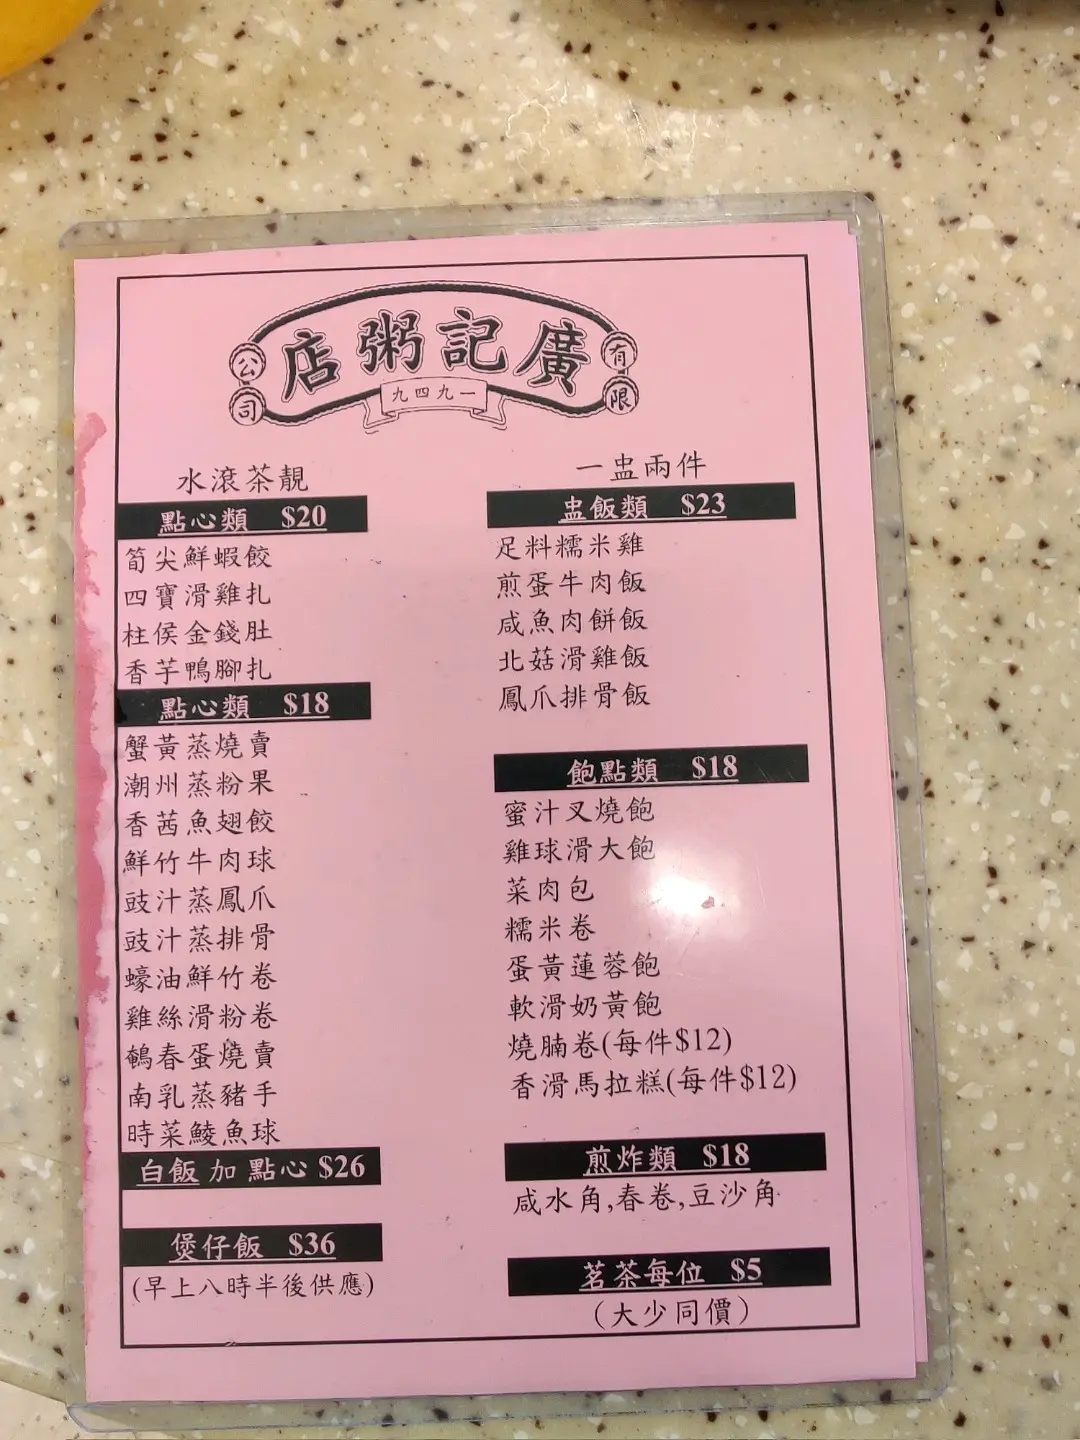 廣記粥店
有限
公司
一九四九
水滾茶靚
點心類 $20
筍尖鮮蝦餃
四寶滑雞扎
柱侯金錢肚
香芋鴨腳扎
點心類 $18
蟹黃蒸燒賣
潮州蒸粉果
香茜魚翅餃
鮮竹牛肉球
豉汁蒸鳳爪
豉汁蒸排骨
蠔油鮮竹卷
雞絲滑粉卷
鵪春蛋燒賣
南乳蒸豬手
時菜鯪魚球
白飯加點心 $26
煲仔飯 $36
(早上八時半後供應)
一盅兩件
盅飯類 $23
足料糯米雞
煎蛋牛肉飯
咸魚肉餅飯
北菇滑雞飯
鳳爪排骨飯
飽點類 $18
蜜汁叉燒飽
雞球滑大飽
菜肉包
糯米卷
蛋黃蓮蓉飽
軟滑奶黃飽
燒腩卷(每件$12)
香滑馬拉糕(每件$12)
煎炸類 $18
咸水角,春卷,豆沙角
茗茶每位 $5
(大少同價)